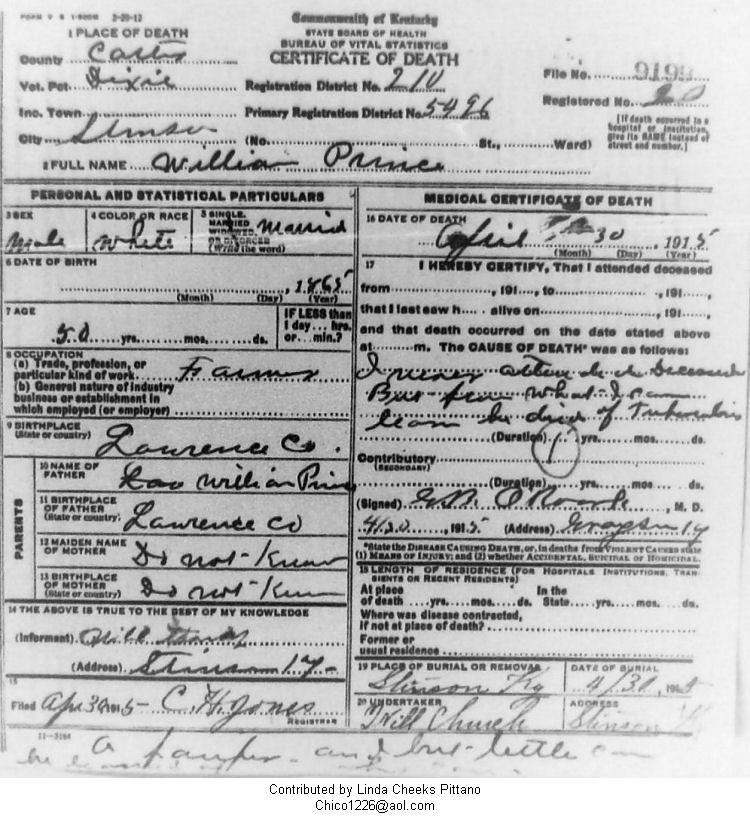 FORM V S 1-500M 2-20-12
Commonwealth of Kentucky
STATE BOARD OF HEALTH
BUREAU OF VITAL STATISTICS
CERTIFICATE OF DEATH
1 PLACE OF DEATH
County Carter
Vot. Pct. Dixie
Registration District No. 210
File No. 9199
Inc. Town
Primary Registration District No. 5496
Registered No. 20
City Stinson (No. St., Ward)
[If death occurred in a hospital or institution, give its NAME instead of street and number.]
2 FULL NAME William Prince
PERSONAL AND STATISTICAL PARTICULARS
3 SEX
Male
4 COLOR OR RACE
White
5 SINGLE, MARRIED WIDOWED, OR DIVORCED (Write the word)
Married
6 DATE OF BIRTH
, 1865
(Month) (Day) (Year)
7 AGE
50 yrs. mos. ds.
IF LESS than 1 day... hrs. or... min.?
8 OCCUPATION
(a) Trade, profession, or particular kind of work Farmer
(b) General nature of industry
business or establishment in
which employed (or employer)
9 BIRTHPLACE
(State or country) Lawrence Co.
PARENTS
10 NAME OF FATHER William Prince
11 BIRTHPLACE OF FATHER (State or country) Lawrence Co
12 MAIDEN NAME OF MOTHER Do not Know
13 BIRTHPLACE OF MOTHER (State or country) Do not Know
14 THE ABOVE IS TRUE TO THE BEST OF MY KNOWLEDGE
(Informant) Will
(Address) Stinson Ky
15
Filed Apr 30 1915 C. H. Jones
REGISTRAR
11-3184
MEDICAL CERTIFICATE OF DEATH
16 DATE OF DEATH
April 30, 1915
(Month) (Day) (Year)
17 I HEREBY CERTIFY, That I attended deceased
from , 191 , to , 191 ,
that I last saw h alive on , 191 ,
and that death occurred on the date stated above
at m. The CAUSE OF DEATH* was as follows:
I never attended the Deceased
But from what I can
learn he died of Tuberculosis
(Duration) 1 yrs. mos. ds.
Contributory
(SECONDARY)
(Duration) yrs. mos. ds.
(Signed) , M. D.
4/30, 1915 (Address) Grayson Ky
*State the DISEASE CAUSING DEATH, or, in deaths from VIOLENT CAUSES state
(1) MEANS OF INJURY; and (2) whether ACCIDENTAL, SUICIDAL or HOMICIDAL.
18 LENGTH OF RESIDENCE (FOR HOSPITALS, INSTITUTIONS, TRANSIENTS OR RECENT RESIDENTS)
At place of death yrs. mos. ds. In the State yrs. mos. ds.
Where was disease contracted,
if not at place of death?
Former or
usual residence
19 PLACE OF BURIAL OR REMOVAL
Stinson Ky
DATE OF BURIAL
4/30, 1915
20 UNDERTAKER
Will Church
ADDRESS
Stinson Ky
a pauper and but little can
Contributed by Linda Cheeks Pittano
Chico1226@aol.com